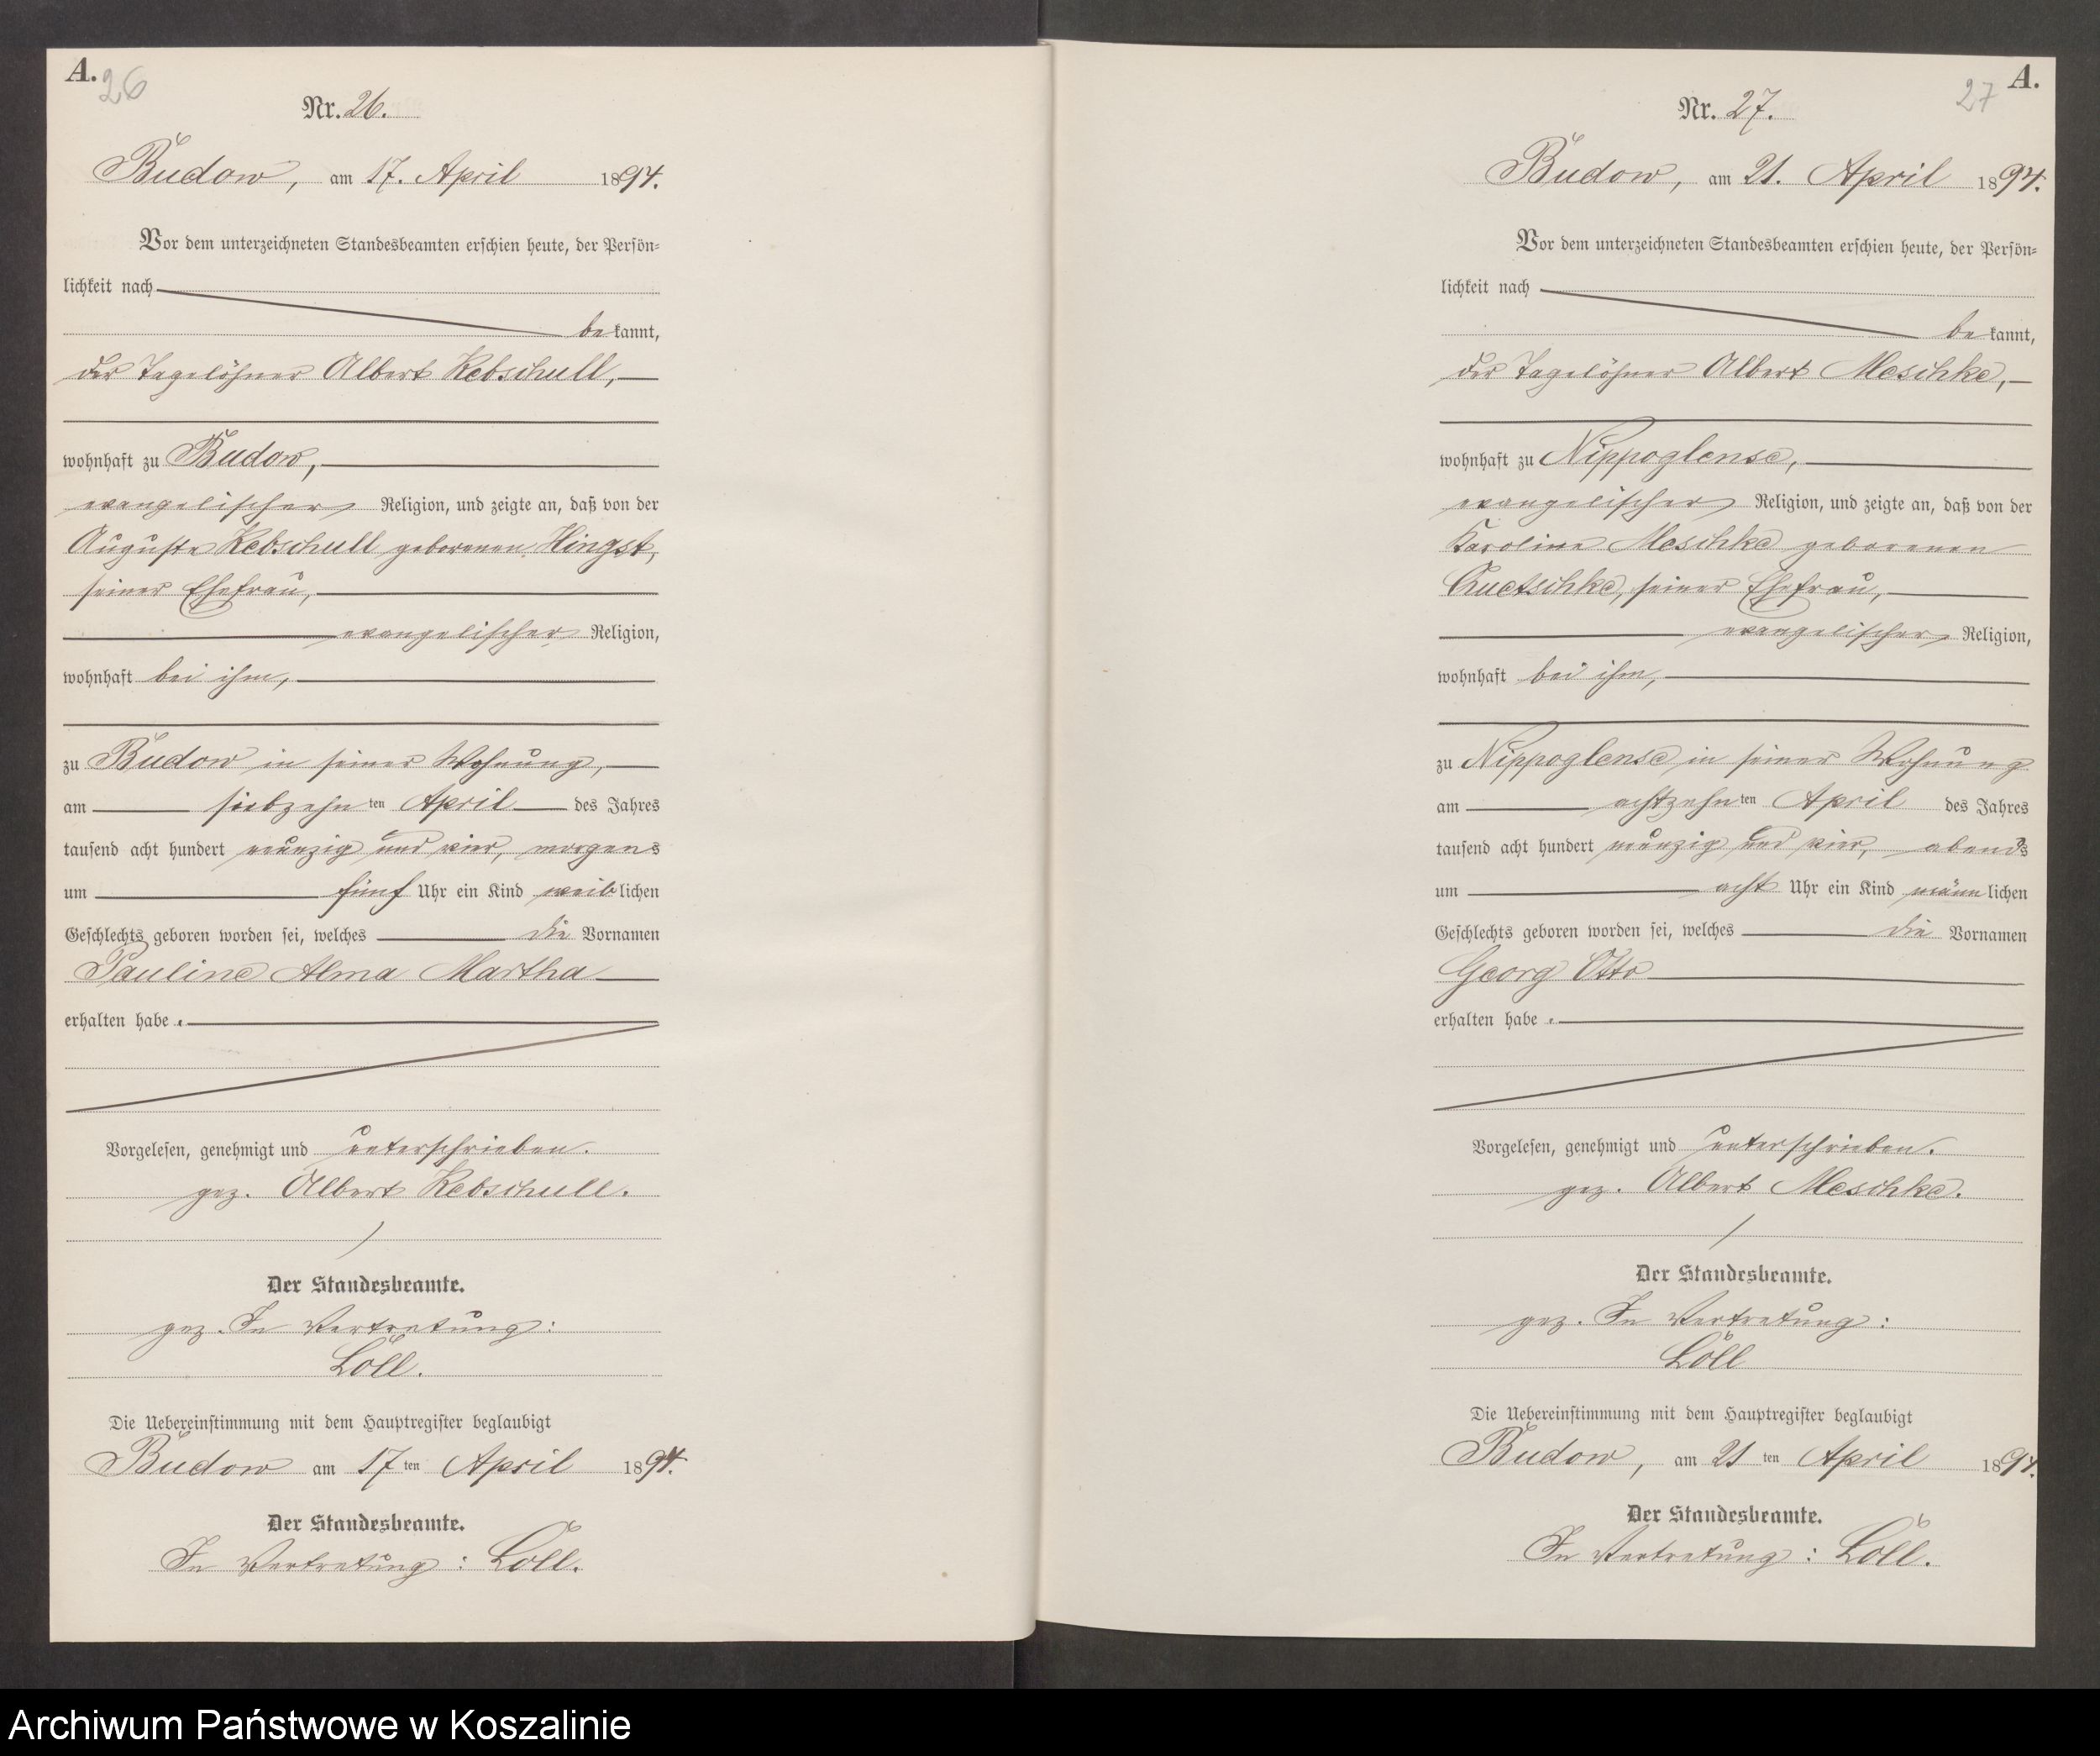 A.
26
Nr. 26.
Budow, am 17. April 1894.
Vor dem unterzeichneten Standesbeamten erschien heute, der Persön-
lichkeit nach
bekannt,
der Tagelöhner Albert Kebschull,
wohnhaft zu Budow,
evangelischer Religion, und zeigte an, daß von der
Auguste Kebschull geborenen Hingst,
seiner Ehefrau,
evangelischer Religion,
wohnhaft bei ihm,
zu Budow in seiner Wohnung,
am siebzehnten April des Jahres
tausend acht hundert neunzig und vier, morgens
um fünf Uhr ein Kind weiblichen
Geschlechts geboren worden sei, welches die Vornamen
Pauline Alma Martha
erhalten habe.
Vorgelesen, genehmigt und unterschrieben.
gez. Albert Kebschull.
Der Standesbeamte.
gez. In Vertretung:
Löll.
Die Uebereinstimmung mit dem Hauptregister beglaubigt
Budow am 17ten April 1894.
Der Standesbeamte.
In Vertretung: Löll.
27 A.
Nr. 27.
Budow, am 21. April 1894.
Vor dem unterzeichneten Standesbeamten erschien heute, der Persön-
lichkeit nach
bekannt,
der Tagelöhner Albert Meschke,
wohnhaft zu Nippoglense,
evangelischer Religion, und zeigte an, daß von der
Karoline Meschke geborenen
Quetschke, seiner Ehefrau,
evangelischer Religion,
wohnhaft bei ihm,
zu Nippoglense in seiner Wohnung
am achtzehnten April des Jahres
tausend acht hundert neunzig und vier, abends
um acht Uhr ein Kind männlichen
Geschlechts geboren worden sei, welches die Vornamen
Georg Otto
erhalten habe.
Vorgelesen, genehmigt und unterschrieben.
gez. Albert Meschke.
Der Standesbeamte.
gez. In Vertretung:
Löll
Die Uebereinstimmung mit dem Hauptregister beglaubigt
Budow, am 21ten April 1894.
Der Standesbeamte.
In Vertretung: Löll.
Archiwum Państwowe w Koszalinie